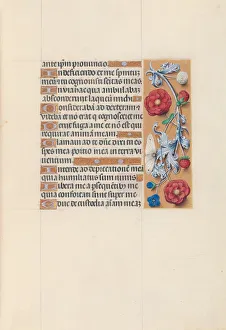 ante ipm pronuncio.
In deficiendo ex me spiritū
meū: et tu cognouisti semitas meas
In via hac qua ambulabā:
absconderunt laqueū michi
Considerabā ad dexterā et
videbā: et nō erat q cognosceret me
Periit fuga a me et nō est qui
requirat animam meam.
Clamaui ad te dñe dixi tu es
spes mea portio mea in terra vi
uentium.
Intende ad deprecationē meā
quia humiliatus sum nimis.
Libera me a psequētib; me
quia confortati sunt super me
Educ de custodia aīam meā